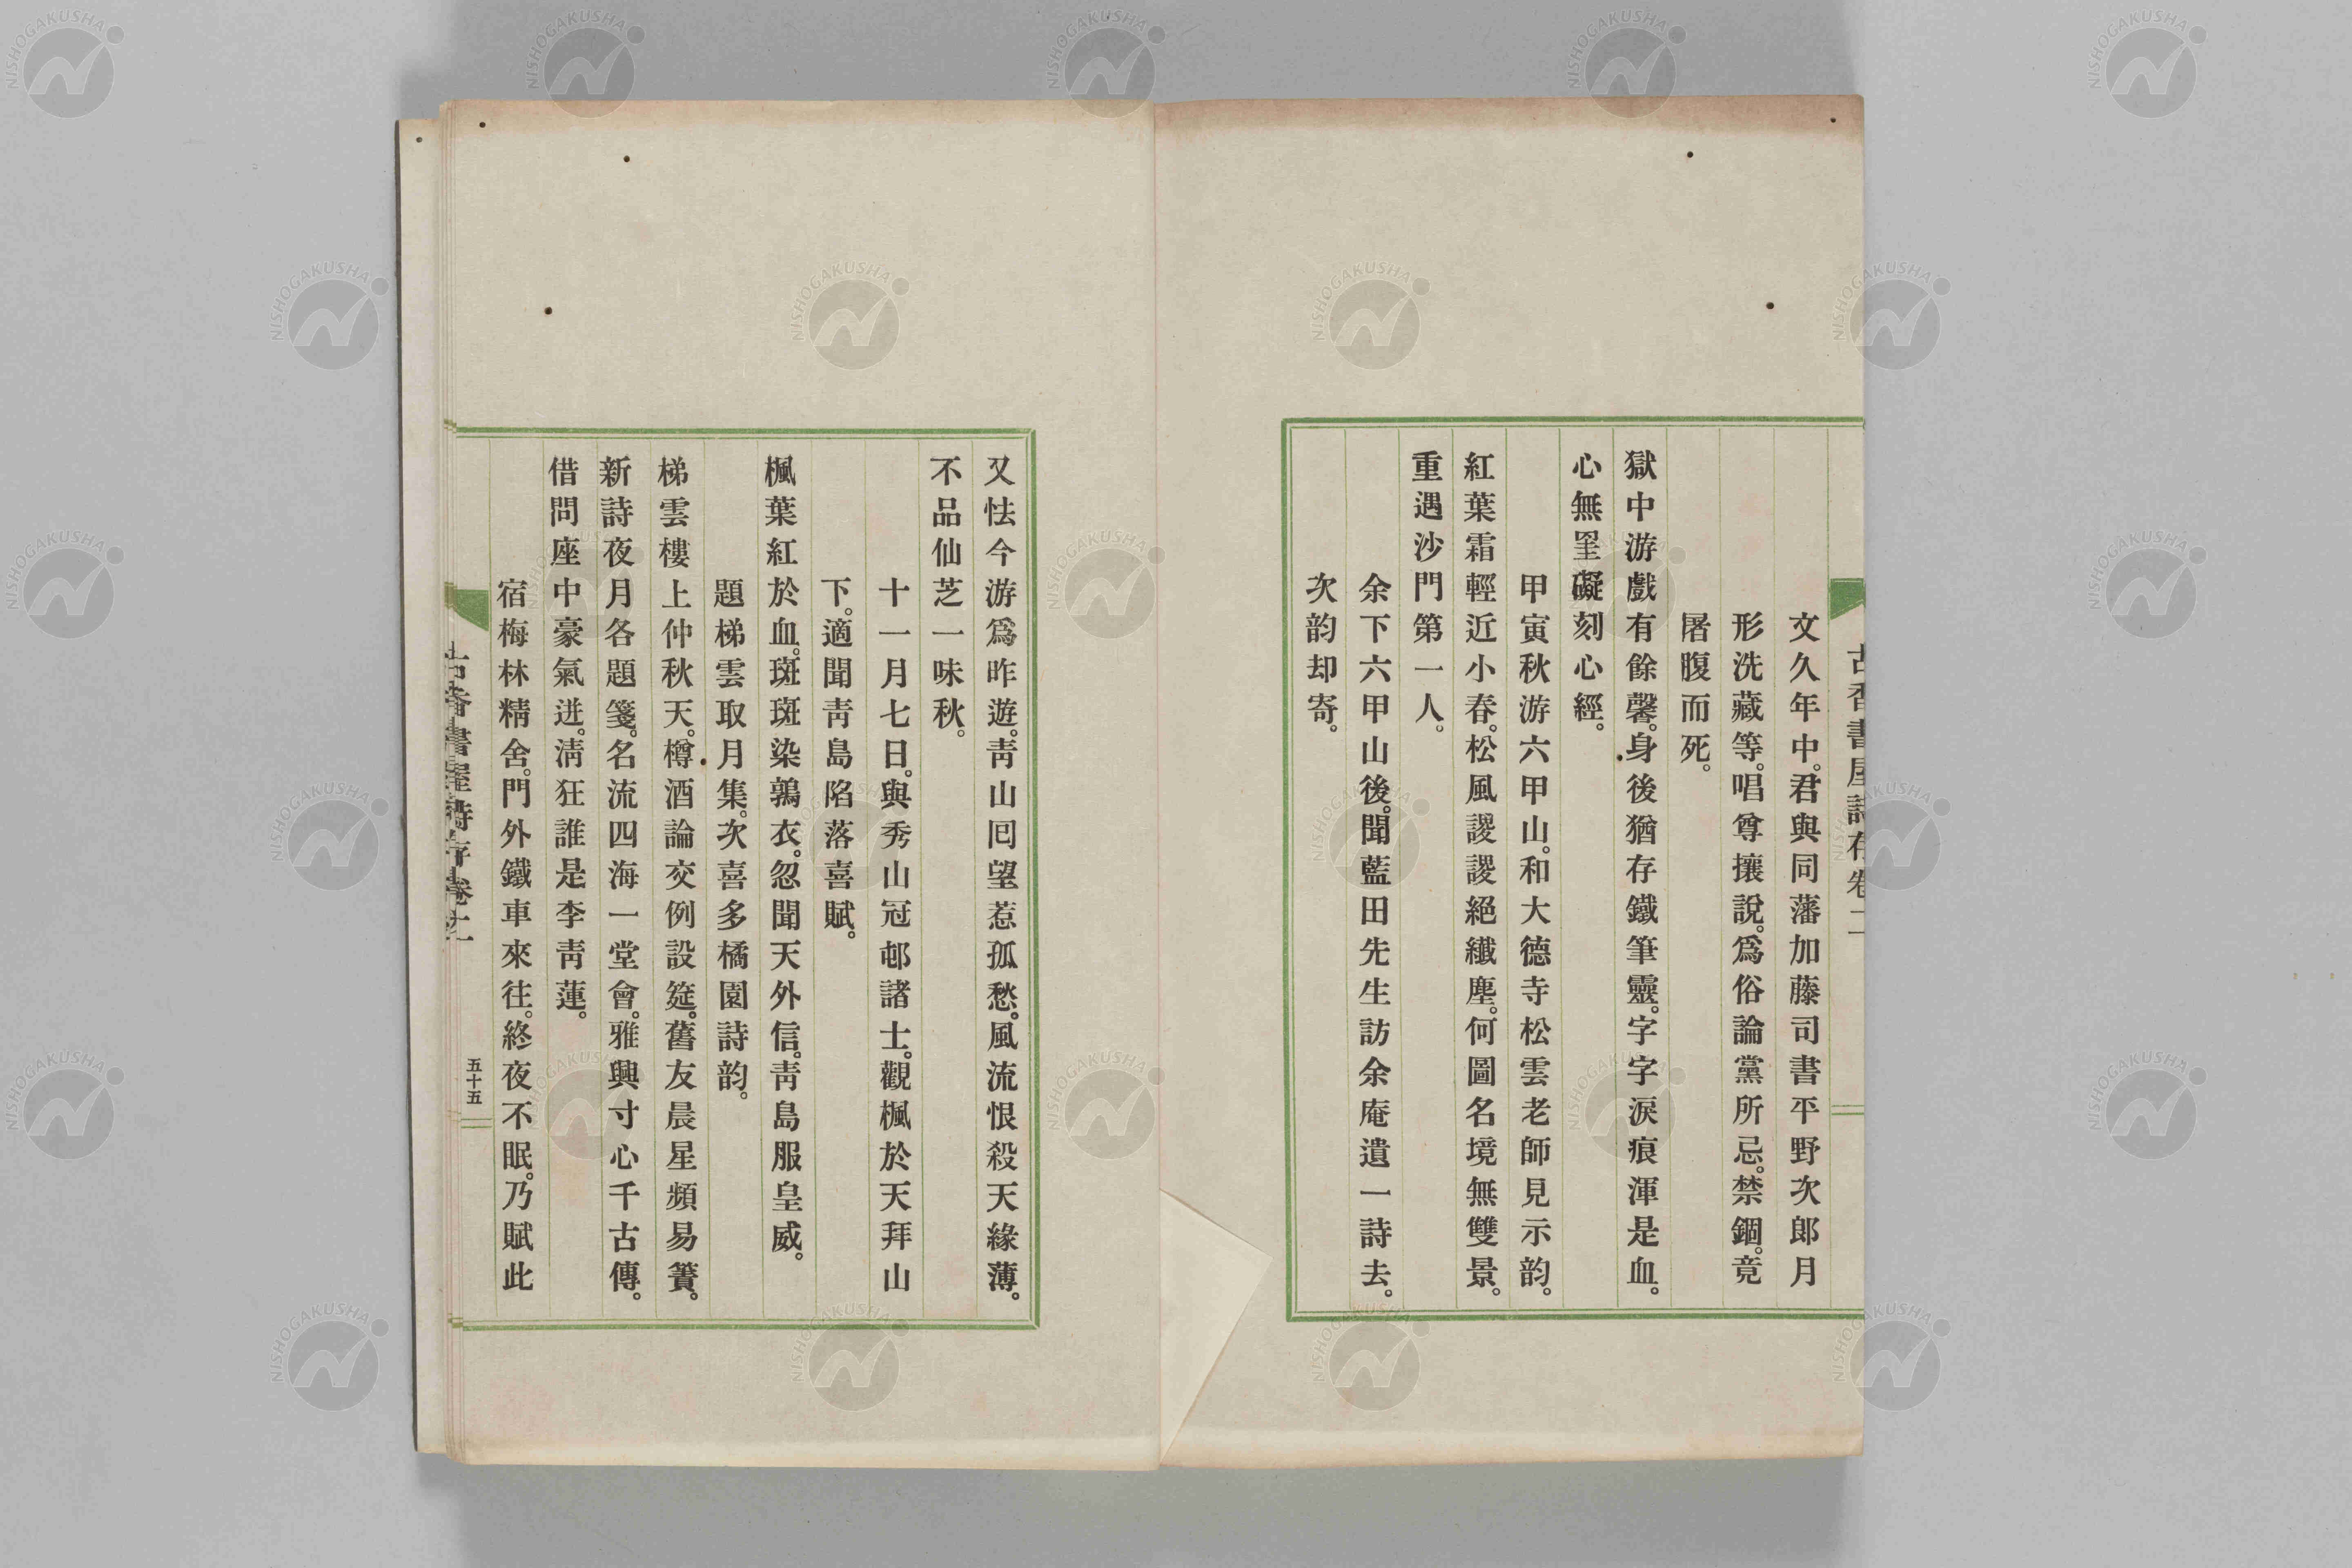 古香書屋詩存卷二
文久年中。君與同藩加藤司書平野次郎月
形洗藏等。唱尊攘說。爲俗論黨所忌。禁錮。竟
屠腹而死。
獄中游戲有餘馨。身後猶存鐵筆靈。字字淚痕渾是血。
心無罣礙刻心經。
甲寅秋游六甲山。和大德寺松雲老師見示韵。
紅葉霜輕近小春。松風謖謖絕纖塵。何圖名境無雙景。
重遇沙門第一人。
余下六甲山後。聞藍田先生訪余庵遺一詩去。
次韵却寄。
又怯今游爲昨遊。靑山囘望惹孤愁。風流恨殺天緣薄。
不品仙芝一味秋。
十一月七日。與秀山冠邨諸士。觀楓於天拜山
下。適聞靑島陷落喜賦。
楓葉紅於血。斑斑染鶉衣。忽聞天外信。靑島服皇威。
題梯雲取月集。次喜多橘園詩韵。
梯雲樓上仲秋天。樽酒論交例設筵。舊友晨星頻易簀。
新詩夜月各題箋。名流四海一堂會。雅興寸心千古傳。
借問座中豪氣迸。淸狂誰是李靑蓮。
宿梅林精舍。門外鐵車來往。終夜不眠。乃賦此
古香書屋詩存卷二
五十五
NISHOGAKUSHA